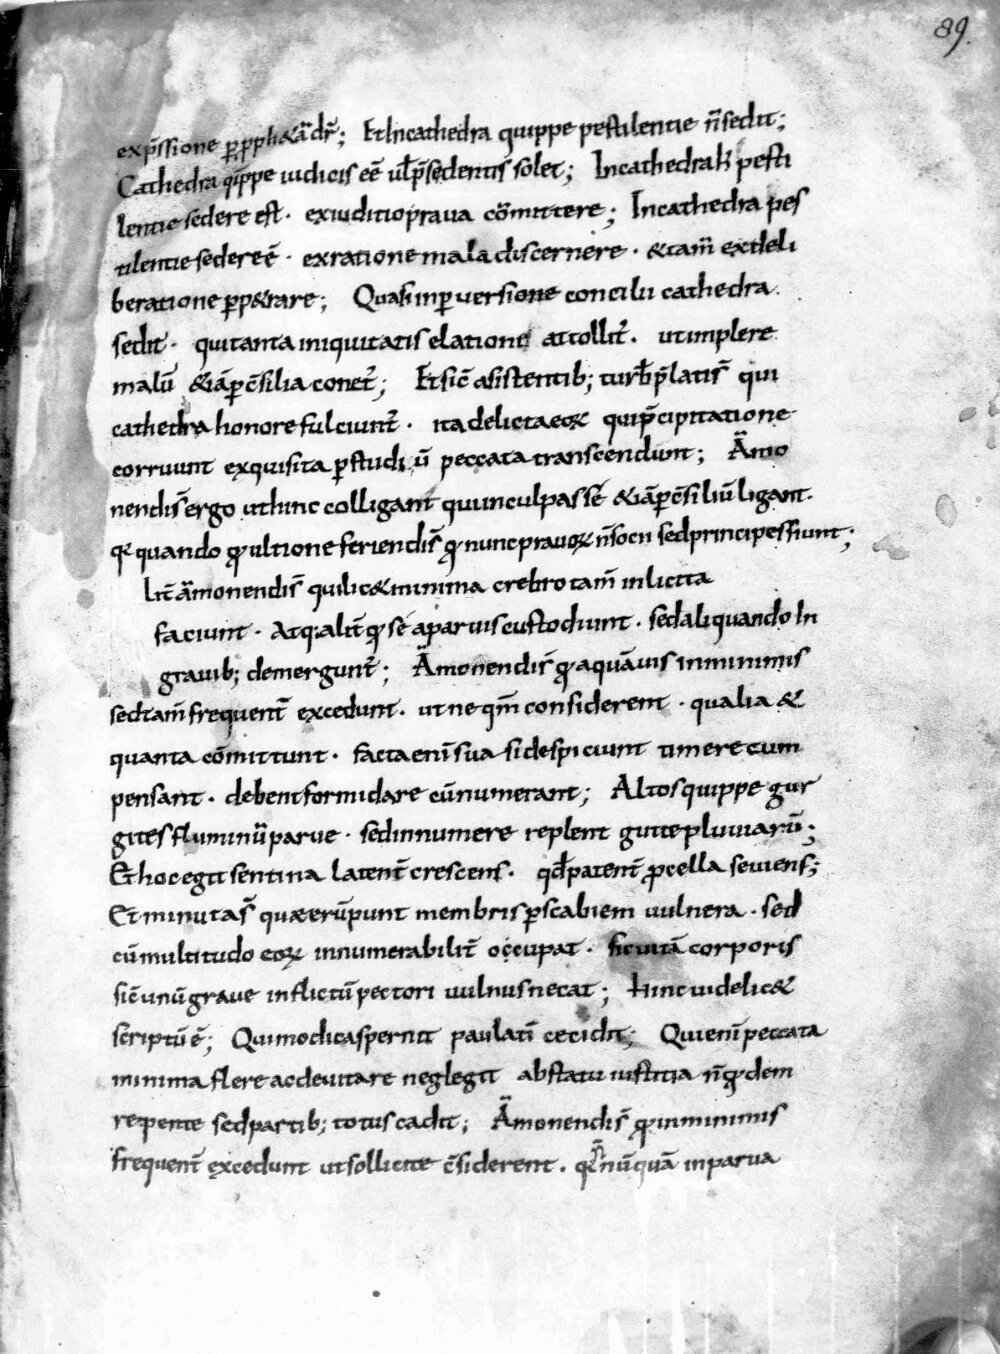 89.
exp̄ssione ꝑ ꝓph&ā dr̄; Et In cathedra quippe pestilentie n̄ sedit;
Cathedra q̄ppe iudicis eē ul̄ p̄sedentis solet; In cathedra u͛ pesti
lentie sedere est · ex iuditio praua cōmittere; In cathedra pes
tilentie sedere ē · ex ratione mala discernere · & tam̄ ex deli
beratione ꝑp&rare; Quasi in ꝑuersione concilii cathedra
sedit · qui tanta iniquitatis elatione attollit᷑ · ut implere
malū &iā ꝑ c̄silia conet᷑; Et sic̄ asistentib; turb̄ p̄lati s̄ qui
cathedra honore fulciunt᷑ · ita delicta eoꝝ qui p̄cipitatione
corruunt exquisita ꝑ studiū peccata transcendunt; Āmo
nendi s̄ ergo ut hinc colligant qui in culpas se &iā ꝑ c̄siliū ligant ·
qꝫ quando ꝙ ultione feriendi s̄ ꝙ nunc prauoꝝ n̄ socii sed principes fiunt;
It̄ āmonendi s̄ qui lic& minima crebro tam̄ inlicita
faciunt · Atq; alit̄ ꝙ se a paruis custodiunt · sed aliquando In
grauib; demergunt᷑; Āmonendi s̄ ꝙ a quāuis in minimis
sed tam̄ frequent̄ excedunt · ut neq̄m considerent · qualia &
quanta cōmittunt · facta enī sua si despiciunt timere cum
pensant · debent formidare cū numerant; Altos quippe gur
gites fluminū parue · sed innumere replent gutte pluuiarū;
Et hoc egit sentina latent̄ crescens · qd̄ patent̄ ꝓcella seuiens;
Et minuta s̄ quæ erūpunt membris ꝑ scabiem uulnera · sed
cū multitudo eoꝝ innumerabilit̄ occupat · sic uitā corporis
sic̄ unū graue inflictū pectori uulnus necat; Hinc uidelic&
scriptū ē; Qui modica spernit paulatī cecidit; Qui enī peccata
minima flere ac deuitare neglegit a bstatu iustitia n̄ qdem
repente sed partib; totus cadit; Āmonendi s̄ ꝙ in minimis
frequent̄ excedunt ut sollicite c̄siderent · qꝫ n̄nūquā in parua